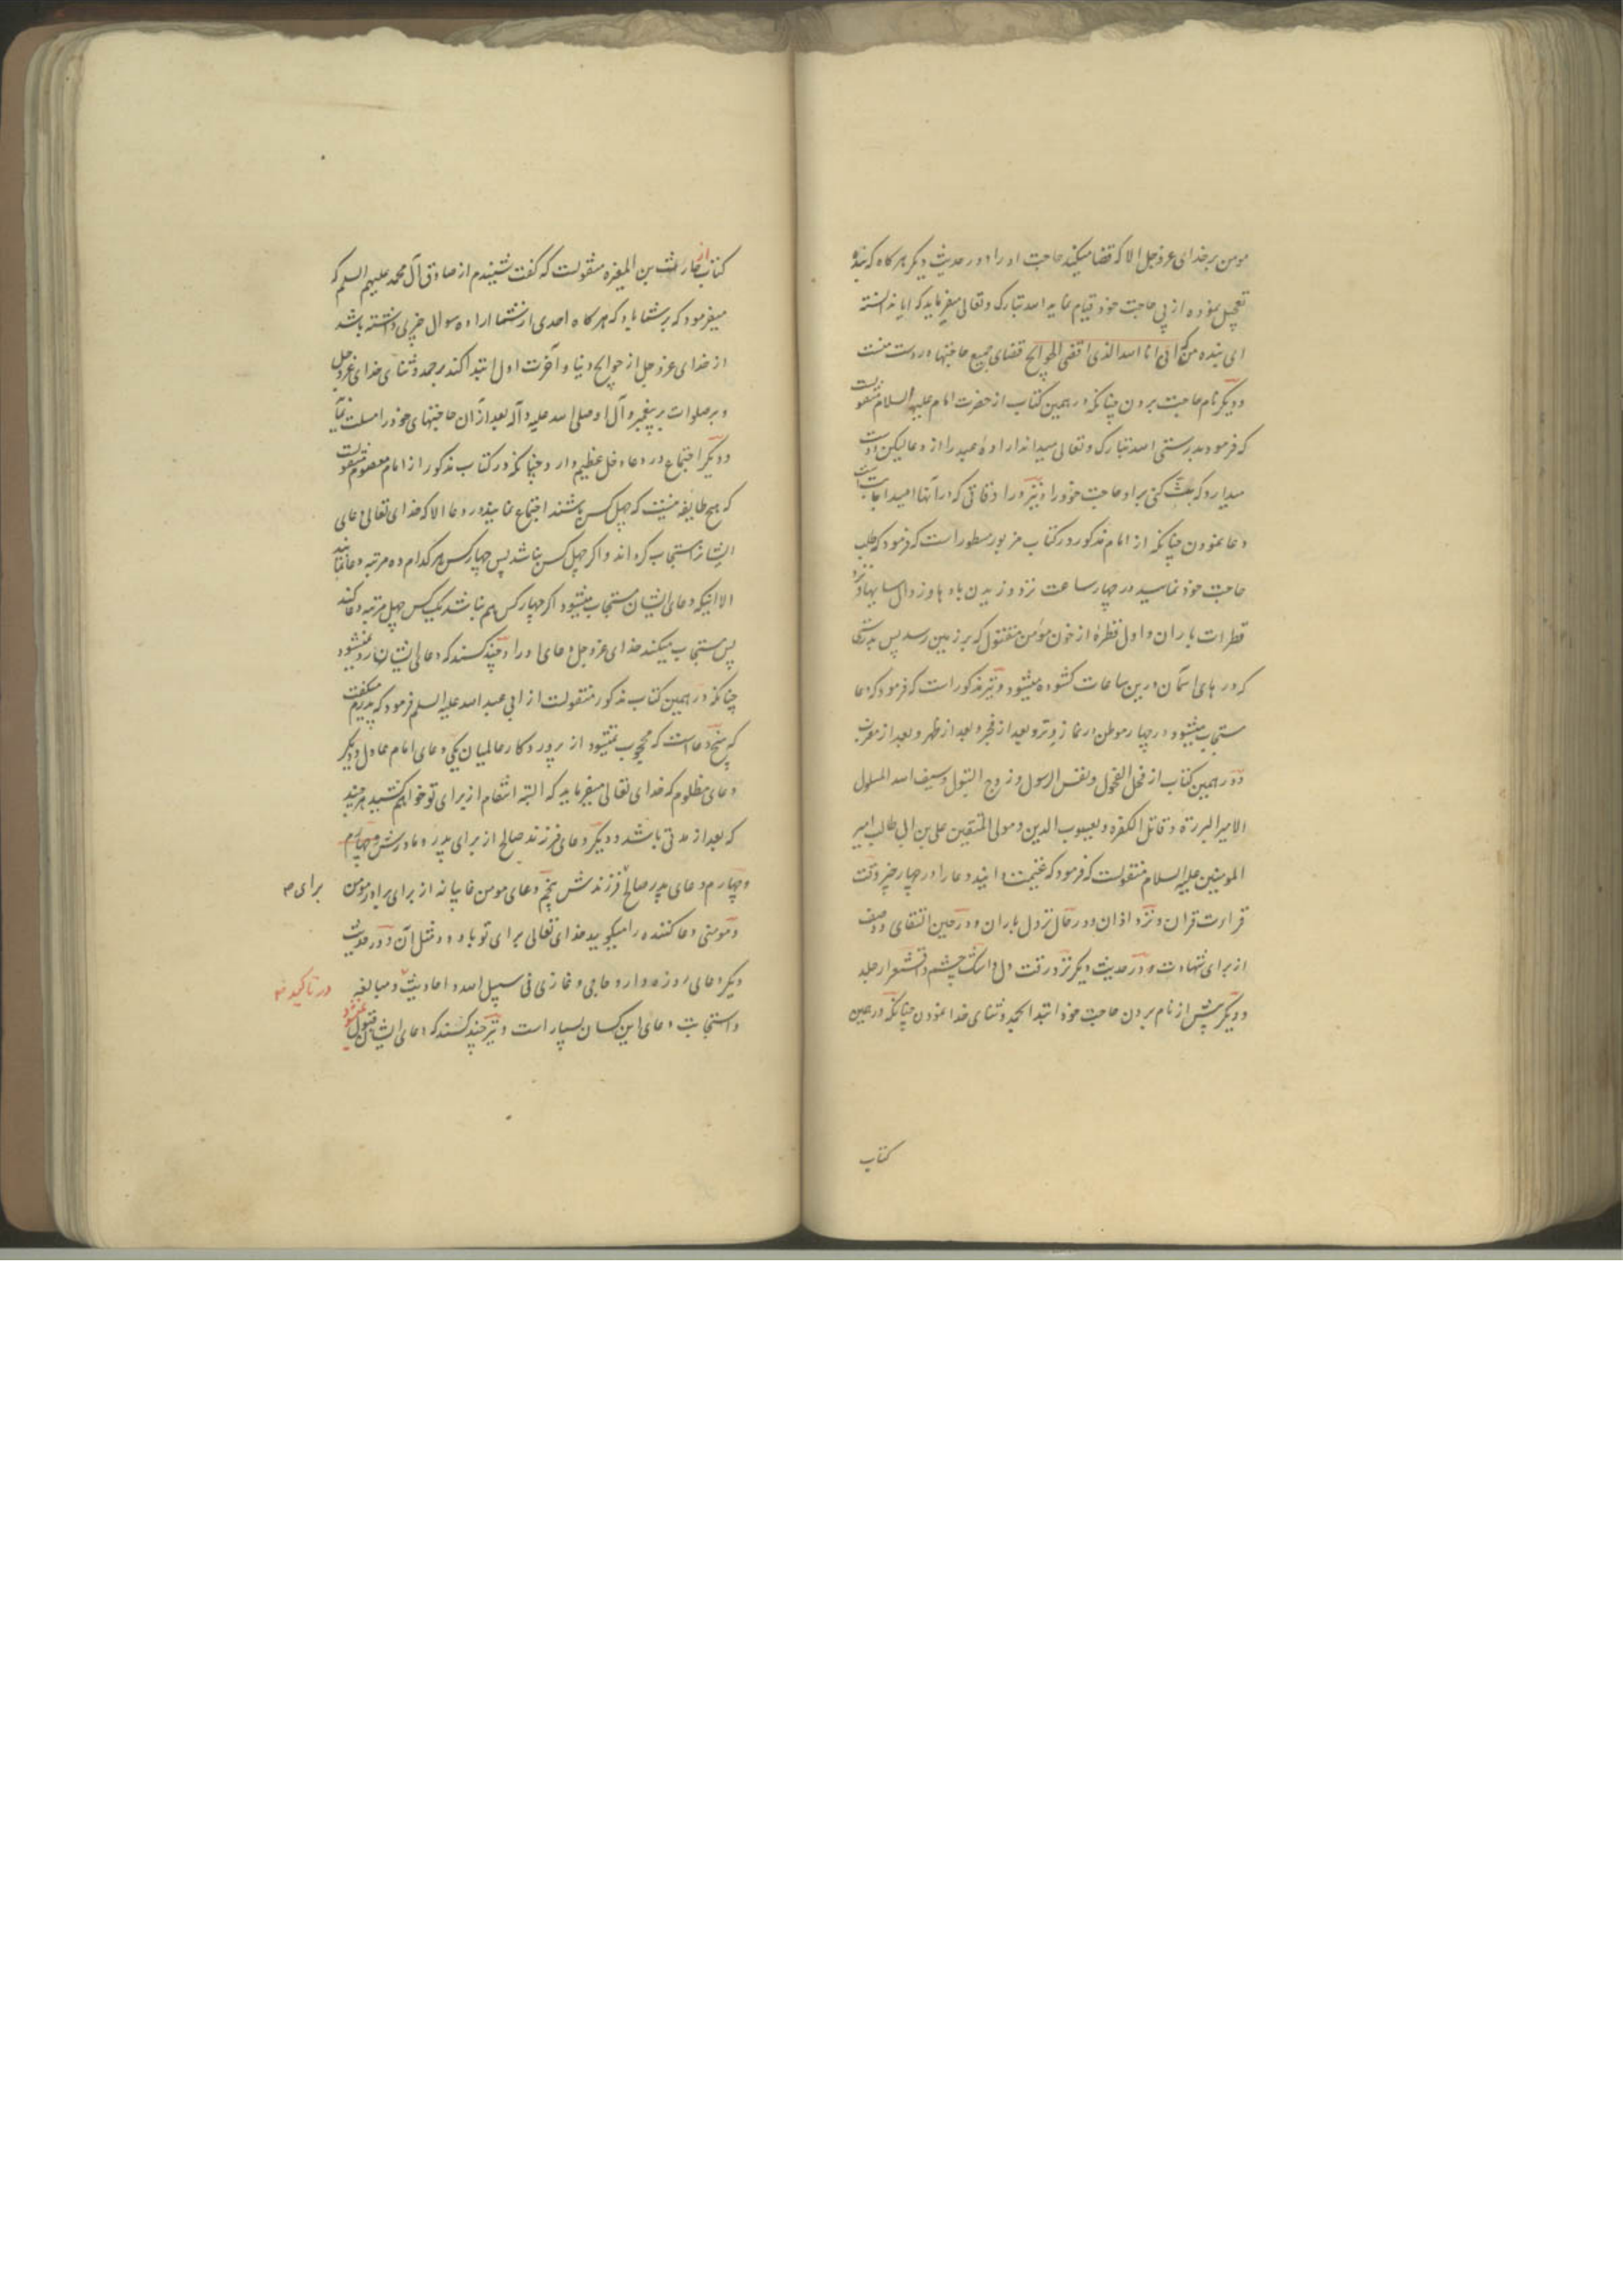 مومن بر خدای عزوجل الا که قضا میکند حاجت او را و در حدیث دیگر هر کاه که بنده
تعجیل نموده از پی حاجت خود قیام نماید الله تبارک و تعالی میفرماید که ایا ندانسته
ای بنده من که انی انا الله الذی اقضی الحوایج قضای جمیع حاجتها در دست منست
و دیگر نام حاجت بردن چنانکه در همین کتاب از حضرت امام علیه السلام منقولست
که فرمود بدرستی الله تبارک و تعالی میداند اراده عبد را از دعا لیکن دوست
میدارد که کنی براو حاجت خود را و نیز در اوقاتی که در آنها امید اجابت است
دعا نمودن چنانکه از امام مذکور در کتاب مزبور مسطور است که فرمود که طلب
حاجت خود نمایید در چهار ساعت نزد وزیدن بادها و زوال سایها و نزد
قطرات باران و اول قطرهٔ از خون مومن مقتول که بر زمین رسد پس بدرستی
که درهای اسمان درین ساعات کشوده میشود و نیز مذکور است که فرمود که دعا
مستجاب میشود در چهار موطن در نماز وتر و بعد از فجر و بعد از ظهر و بعد از مغرب
و در همین کتاب از فحل الفحول و نفس الرسول و زوج البتول و سیف الله المسلول
الامیر البررة و قاتل الکفره و یعسوب الدین و مولی المتقین علی بن ابی طالب امیر
المومنین علیه السلام منقولست که فرمود که غنیمت دانید دعا را در چهار چیز وقت
قراءت قران و نزد اذان و در حال نزول باران و در حین التقای دو صف
از برای شهادت و در حدیث دیگر نزد رقت دل و اشک چشم و اقشعرار جلد
و دیگر پیش از نام بردن حاجت خود ابتدا بحمد و ثنای خدا نمودن چنانکه در همین
کتاب
کتاب از حارث بن المغیره منقولست که کفت شنیدم از صادق آل محمد علیهم السلم که
میفرمود که بر شما باد که هر کاه احدی از شما اراده سوال چیزی داشته باشد
از خدای عزوجل از حوایج دنیا و آخرت اول ابتدا کند بر حمد و ثنای خدای عزوجل
و بر صلوات بر پیغمبر و آل او صلی الله علیه و آله بعد از آن حاجتهای خود را مسئلت نماید
و دیگر اجتماع در دعا دخل عظیم دارد چنانکه در کتاب مذکور از امام معصوم منقولست
که هیچ طایفه نیست که چهل کس باشند اجتماع نمایند در دعا الا که خدای تعالی دعای
ایشانرا مستجاب کرداند و اکر چهل کس نباشد پس چهار کس هر کدام ده مرتبه دعا نمایند
الا اینکه دعای ایشان مستجاب میشود اکر چهار کس هم نباشد یک کس چهل مرتبه دعا کند
پس مستجاب میکند خدای عزوجل دعای او را و چند کسند که دعای ایشان رد نمیشود
چنانکه در همین کتاب مذکور منقولست از ابی عبد الله علیه السلم فرمود که پدرم میکفت
که پنج دعا است که محجوب نمیشود از پروردکار عالمیان یکی دعای امام عادل و دیگر
دعای مظلوم که خدای تعالی میفرماید که البته انتقام از برای تو خواهم کشید هر چند
که بعد از مدتی باشد و دیگر دعای فرزند صالح از برای پدر و مادرش و چهارم
و چهارم دعای پدر صالح فرزندش پنجم دعای مومن غایبانه از برای برادر مومن
برای
و مومنی دعا کننده را میکوید خدای تعالی برای تو باد و مثل آن و در حدیث
دیگر دعای روزه دار و حاجی و غازی فی سبیل الله و احادیث و مبالغه
در تاکید
و استجابت دعای این کسان بسیار است و نیز چند کسند که دعای ایشان قبول نمیشود